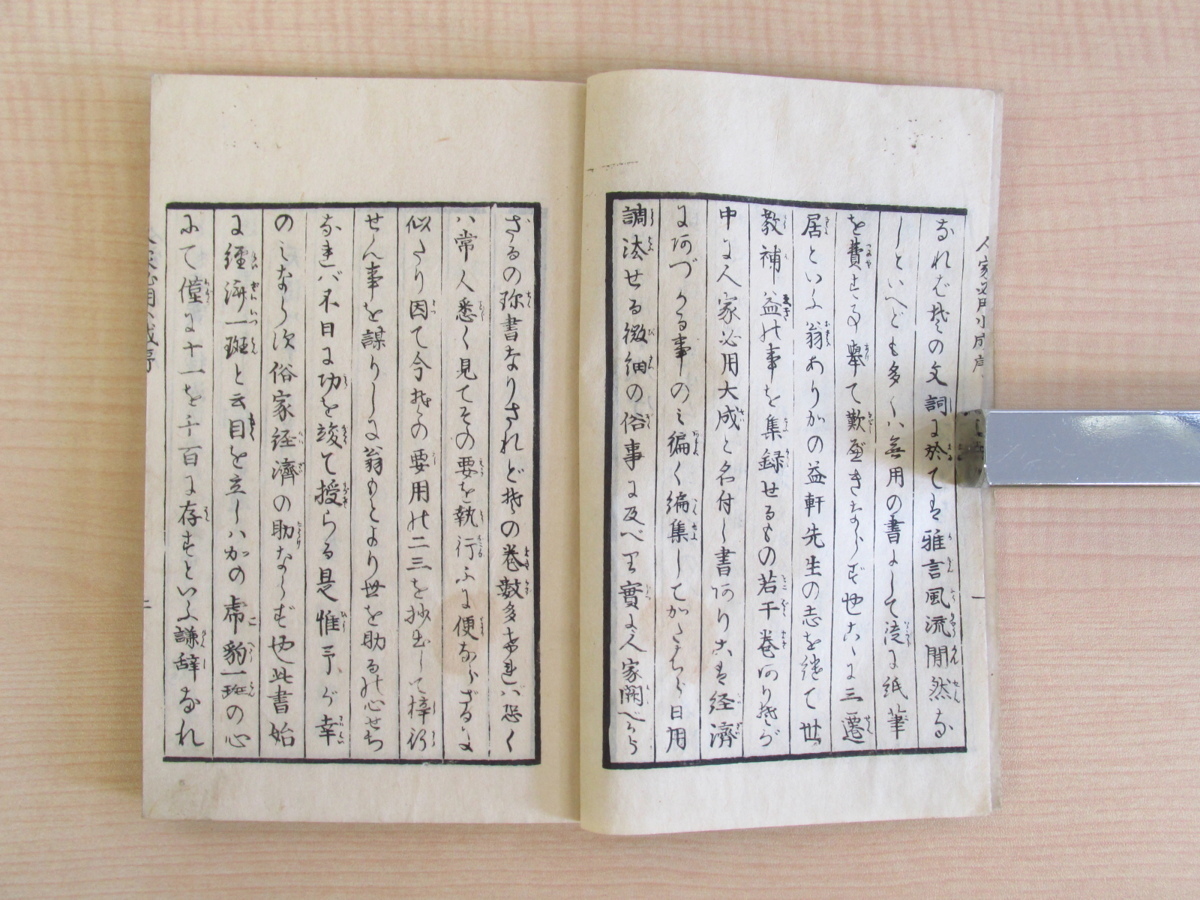 人家必用小成序
なれば其の文詞に於ては雅言風流閒然な
しといへども多くは無用の書にして徒に紙筆
を費する事擧て歎ずべきならずや爰に三遷
居といふ翁ありかの益軒先生の志を継て世
教補益の事を集録せるもの若干巻あり其が
中に人家必用大成と名付し書あり是は経濟
にあづかる事のみ編く編集してかたはら日用
調法せる微細の俗事に及べり實に人家闕べから
ざるの珍書なりされど其の巻数多ければ恐く
は常人悉く見てその要を執行ふに便ならざるに
似たり因て今其の要用の二三を抄出して梓行
せん事を謀りしに翁もとより世を助るの心せち
なれば不日に功を竣て授らる是惟予が幸
のみならず俗家経濟の助ならずや此書始
に經濟一斑と云目を立しはかの虎豹一斑の心
にて僅に十一を千百に存すといふ謙辞なれ